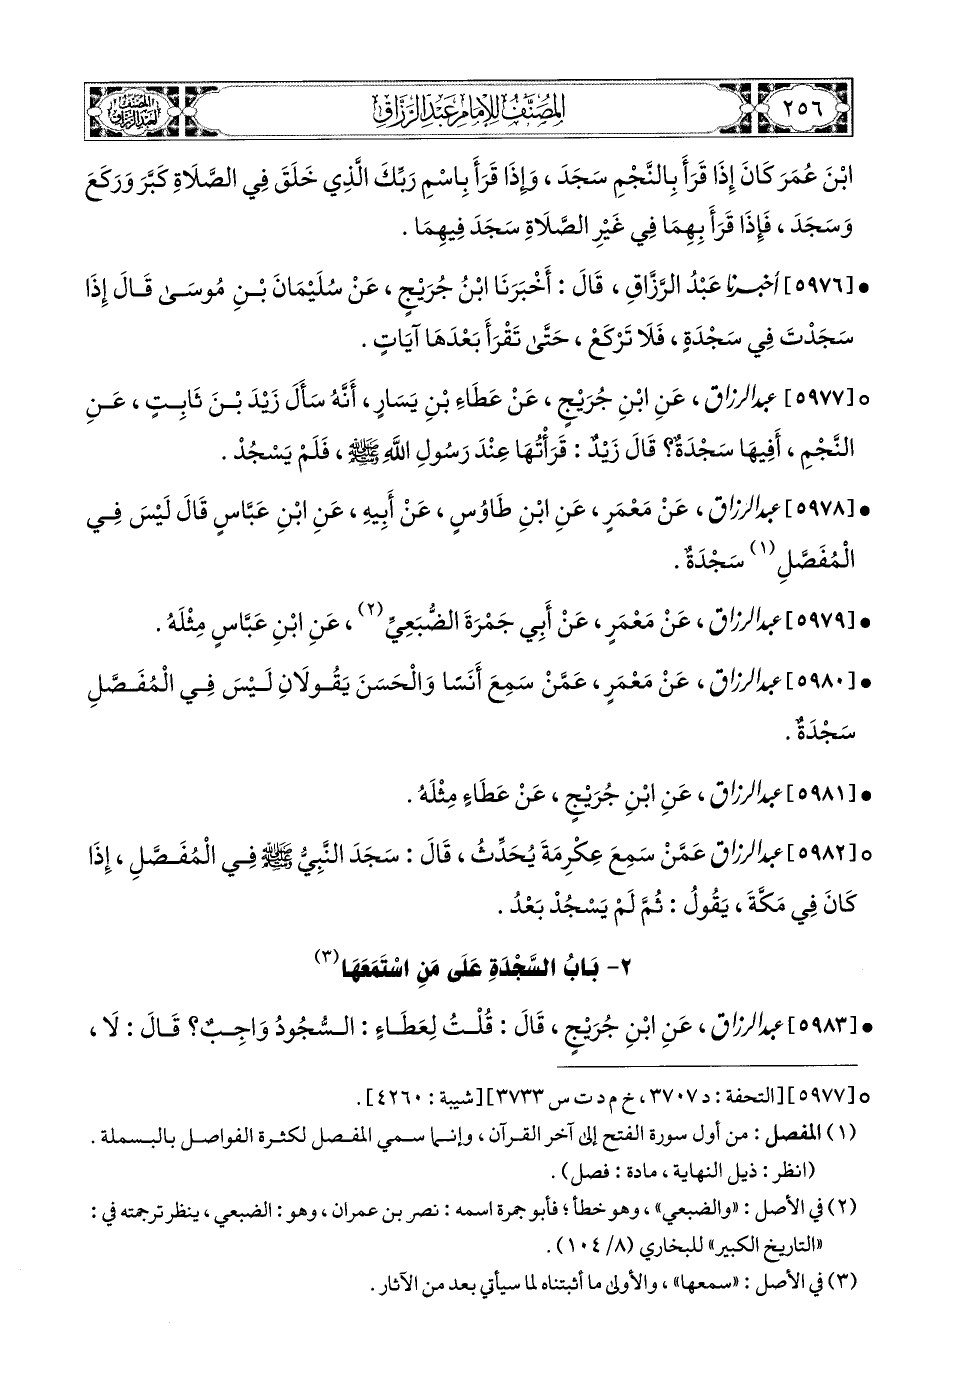 ٢٥٦
المصنف للإمام عبد الرزاق
المصنف
لعبد الرزاق
ابْنَ عُمَرَ كَانَ إِذَا قَرَأَ بِالنَّجْمِ سَجَدَ ، وَإِذَا قَرَأَ بِاسْمِ رَبِّكَ الَّذِي خَلَقَ فِي الصَّلَاةِ كَبَّرَ وَرَكَعَ
وَسَجَدَ ، فَإِذَا قَرَأَ بِهِمَا فِي غَيْرِ الصَّلَاةِ سَجَدَ فِيهِمَا .
• [٥٩٧٦] أخبرنا عَبْدُ الرَّزَّاقِ ، قَالَ : أَخْبَرَنَا ابْنُ جُرَيْجٍ ، عَنْ سُلَيْمَانَ بْنِ مُوسَىٰ قَالَ إِذَا
سَجَدْتَ فِي سَجْدَةٍ ، فَلَا تَرْكَعْ ، حَتَّىٰ تَقْرَأَ بَعْدَهَا آيَاتٍ .
○ [٥٩٧٧] عبد الرزاق ، عَنِ ابْنِ جُرَيْجٍ ، عَنْ عَطَاءِ بْنِ يَسَارٍ ، أَنَّهُ سَأَلَ زَيْدَ بْنَ ثَابِتٍ ، عَنِ
النَّجْمِ ، أَفِيهَا سَجْدَةٌ؟ قَالَ زَيْدٌ : قَرَأْتُهَا عِنْدَ رَسُولِ اللَّهِ ﷺ ، فَلَمْ يَسْجُدْ .
• [٥٩٧٨] عبد الرزاق ، عَنْ مَعْمَرٍ ، عَنِ ابْنِ طَاوُسٍ ، عَنْ أَبِيهِ ، عَنِ ابْنِ عَبَّاسٍ قَالَ لَيْسَ فِي
الْمُفَصَّلِ (١) سَجْدَةٌ .
• [٥٩٧٩] عبد الرزاق ، عَنْ مَعْمَرٍ ، عَنْ أَبِي جَمْرَةَ الضُّبَعِيِّ (٢) ، عَنِ ابْنِ عَبَّاسٍ مِثْلَهُ .
• [٥٩٨٠] عبد الرزاق ، عَنْ مَعْمَرٍ ، عَمَّنْ سَمِعَ أَنَسًا وَالْحَسَنَ يَقُولَانِ لَيْسَ فِي الْمُفَصَّلِ
سَجْدَةٌ .
• [٥٩٨١] عبد الرزاق ، عَنِ ابْنِ جُرَيْجٍ ، عَنْ عَطَاءٍ مِثْلَهُ .
○ [٥٩٨٢] عبد الرزاق عَمَّنْ سَمِعَ عِكْرِمَةَ يُحَدِّثُ ، قَالَ : سَجَدَ النَّبِيُّ ﷺ فِي الْمُفَصَّلِ ، إِذَا
كَانَ فِي مَكَّةَ ، يَقُولُ : ثُمَّ لَمْ يَسْجُدْ بَعْدُ .
٢- بَابُ السَّجْدَةِ عَلَى مَنِ اسْتَمَعَهَا (٣)
• [٥٩٨٣] عبد الرزاق ، عَنِ ابْنِ جُرَيْجٍ ، قَالَ : قُلْتُ لِعَطَاءٍ : السُّجُودُ وَاجِبٌ؟ قَالَ : لَا ،
○ [٥٩٧٧] [التحفة : د ٣٧٠٧ ، خ م د ت س ٣٧٣٣] [شيبة : ٤٢٦٠] .
(١) المفصل : من أول سورة الفتح إلى آخر القرآن ، وإنما سمي المفصل لكثرة الفواصل بالبسملة .
(انظر : ذيل النهاية ، مادة : فصل) .
(٢) في الأصل : «والضبعي» ، وهو خطأ ؛ فأبو جمرة اسمه : نصر بن عمران ، وهو : الضبعي ، ينظر ترجمته في :
«التاريخ الكبير» للبخاري (٨/ ١٠٤) .
(٣) في الأصل : «سمعها» ، والأولى ما أثبتناه لما سيأتي بعد من الآثار .